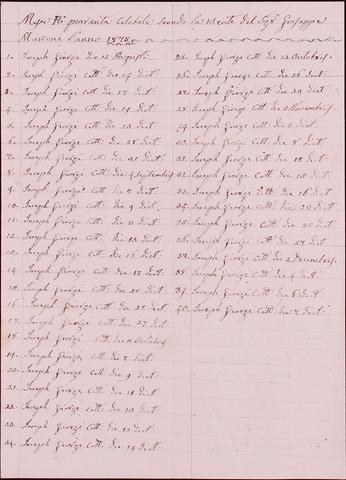 quaranta Celebate secondo la mente del Sigr Giuseppe
l'anno 1878
1. Joseph George die 12 Augusti
2. Joseph George Ctt. die 14 dict
3. Joseph George Ctt. die 17 dict
4. Joseph George Ctt. die 19 dict
5. Joseph George Ctt. die 23 dict
6. Joseph George Ctt. die 28 dict
7. Joseph George Ctt. die 31 dict
8. Joseph George Ctt. die 4 Septembris
9. Joseph George Ctt. die 7 dict
10. Joseph George Ctt. die 9 dict
11. Joseph George Ctt. die 11 dict
12. Joseph George Ctt. die 13 dict
13. Joseph George Ctt. die 16 dict
14. Joseph George Ctt. die 17 dict
15. Joseph George Ctt. die 20 dict
16. Joseph George Ctt. die 23 dict
17. Joseph George Ctt. die 27 dict
18. Joseph George Ctt. die Octobris
19. Joseph George Ctt. die 7 dict
20. Joseph George Ctt. die 9 dict
21. Joseph George Ctt. die 11 dict
22. Joseph George Ctt. die 13 dict
23. Joseph George Ctt. die 15 dict
24. Joseph George Ctt. die 19 dict
25. Joseph George Ctt. die 22 Octobris
26. Joseph George Ctt. die 26 dict
27. Joseph George Ctt. die 29 dict
28. Joseph George Ctt. die Novembris
29. Joseph George Ctt. die 5 dict
30. Joseph George Ctt. die 8 dict
31. Joseph George Ctt. die 12 dict
32. Joseph George Ctt. die 15 dict
33. Joseph George Ctt. die 16 dict
34. Joseph George Ctt. die 20 dict
35. Joseph George Ctt. die 25 dict
36. Joseph George Ctt. die 27 dict
37. Joseph George Ctt. die 2 Decembris
38. Joseph George Ctt. die 4 dict
39. Joseph George Ctt. die 6 dict
40. Joseph George Ctt. die 7 dict